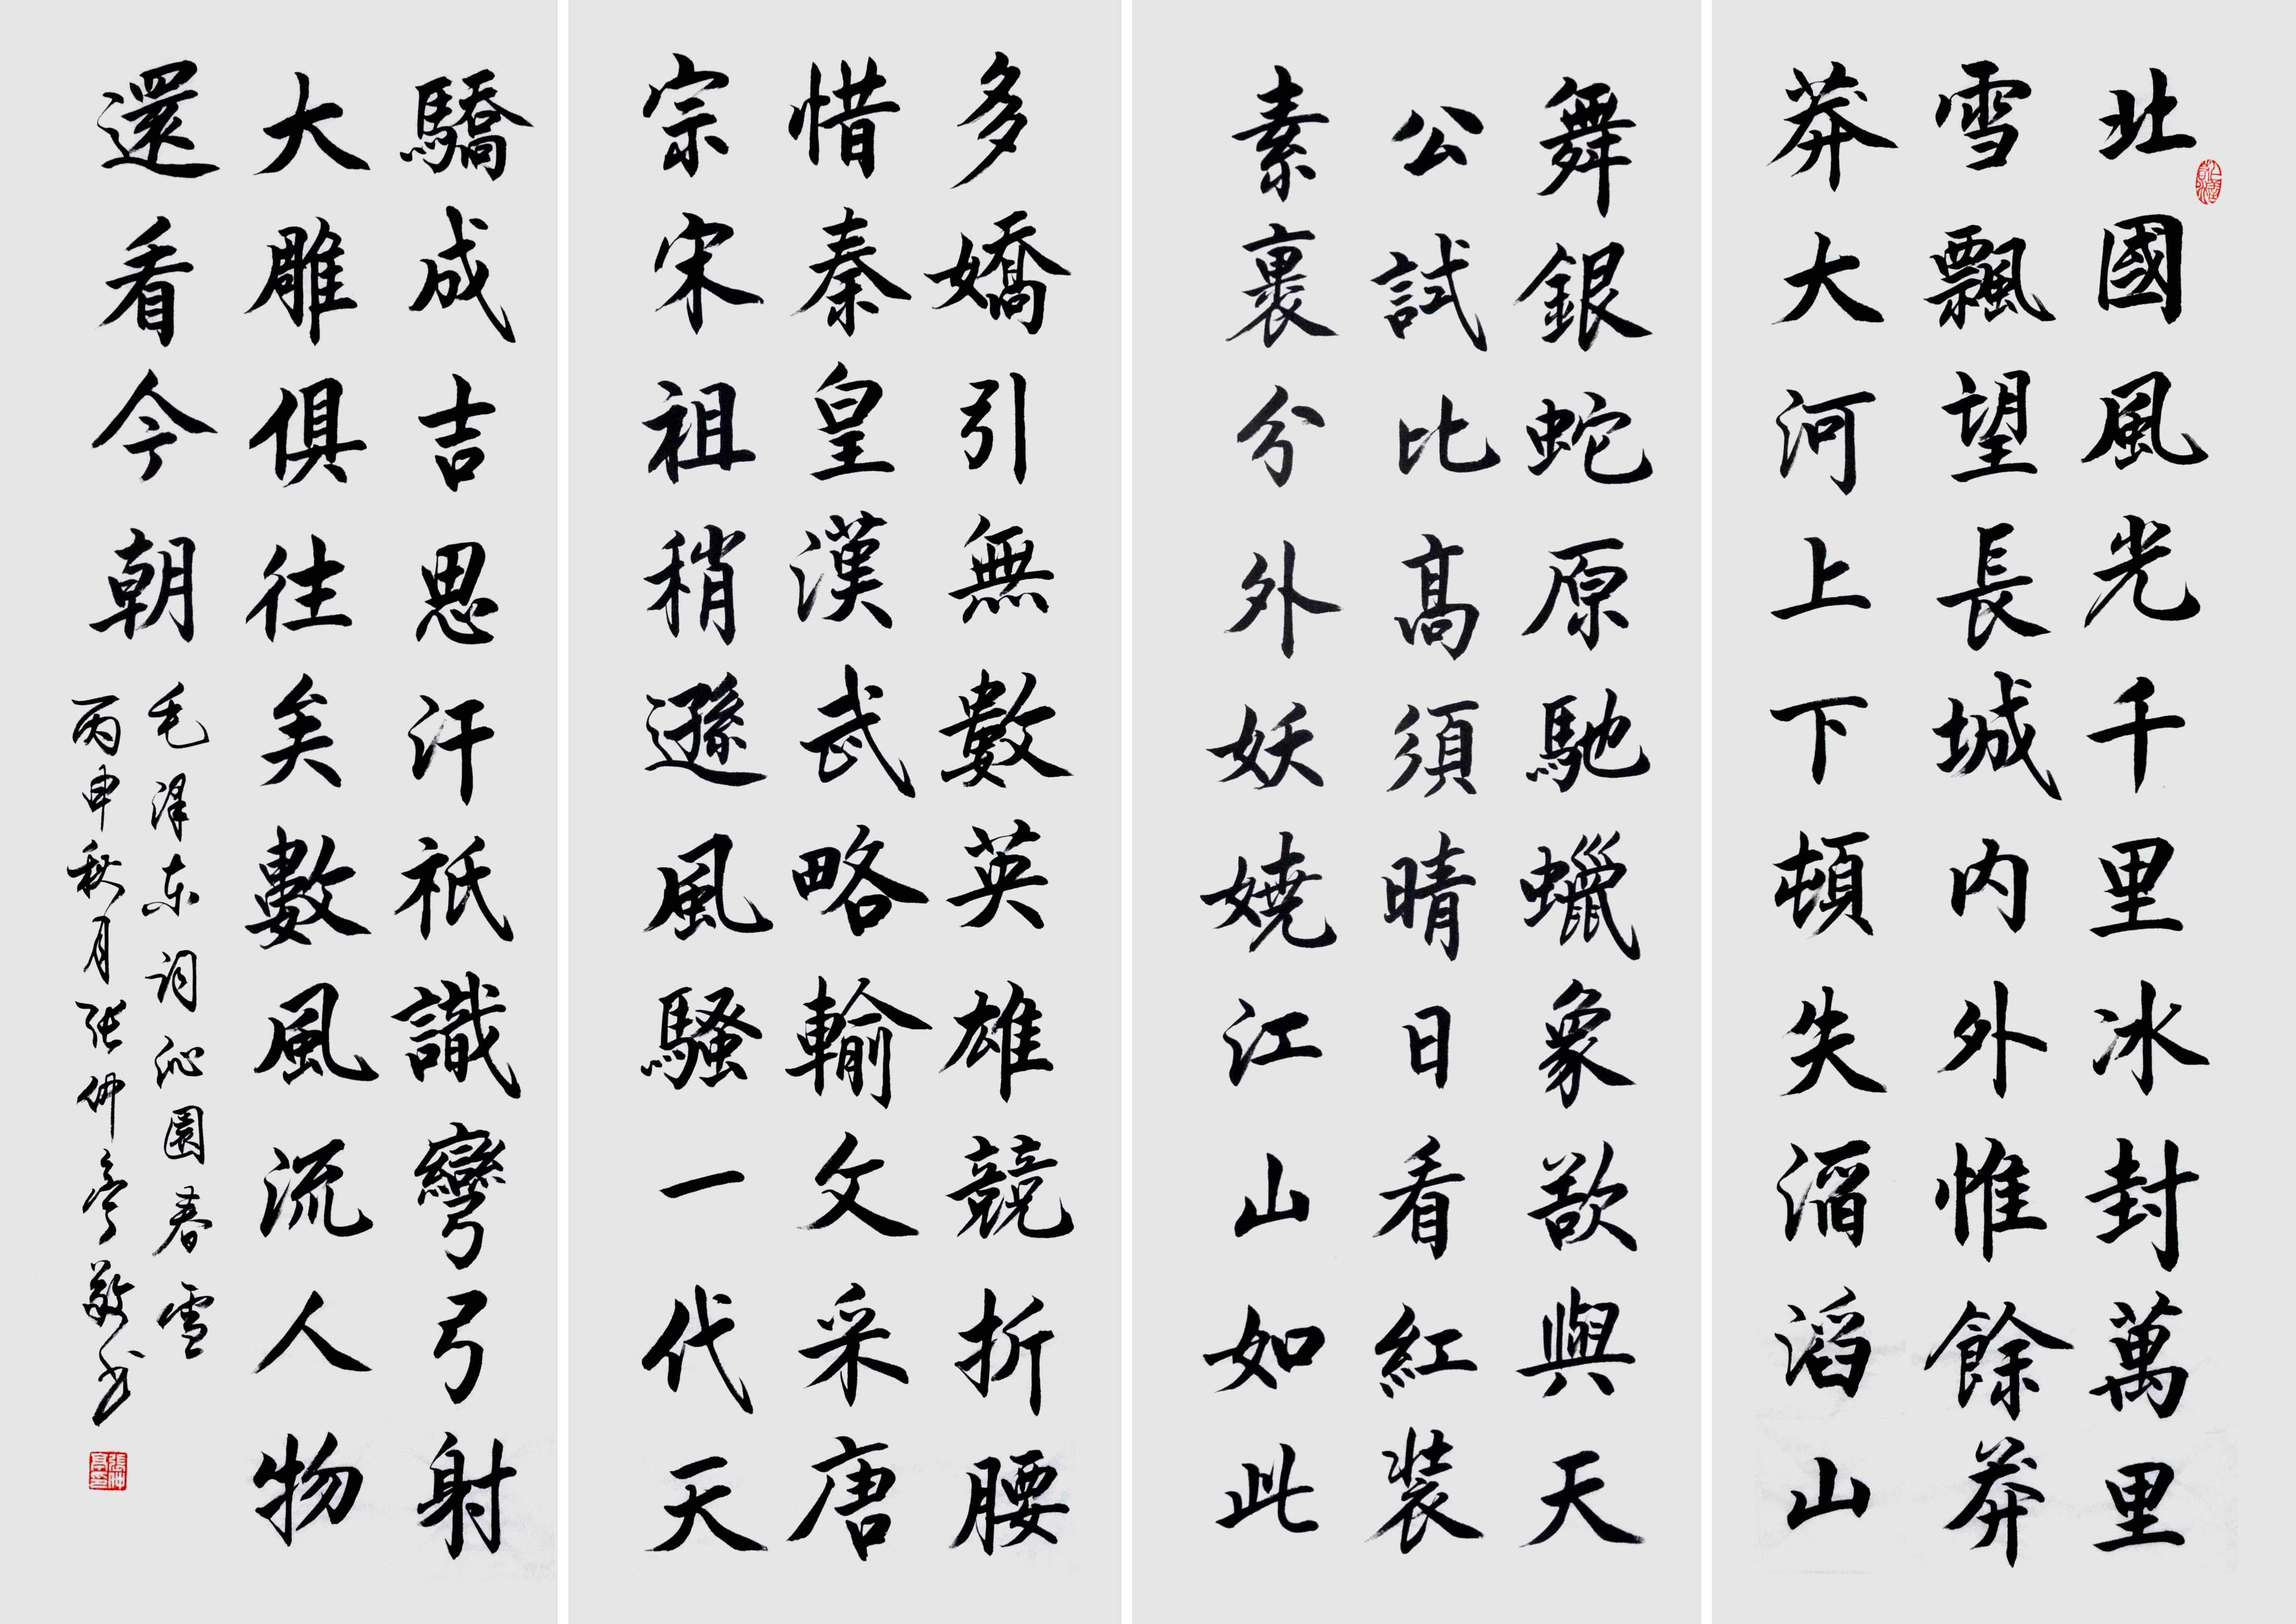 北國風光千里冰封萬里
雪飄望長城内外惟餘莽
莽大河上下頓失滔滔山
舞銀蛇原馳蠟象欲與天
公試比高須晴日看紅裝
素裹分外妖嬈江山如此
多嬌引無數英雄競折腰
惜秦皇漢武略輸文采唐
宗宋祖稍遜風騷一代天
驕成吉思汗祇識彎弓射
大雕俱往矣數風流人物
還看今朝
毛泽东词沁園春雪
丙申秋月张仲亭敬书
張仲亭印